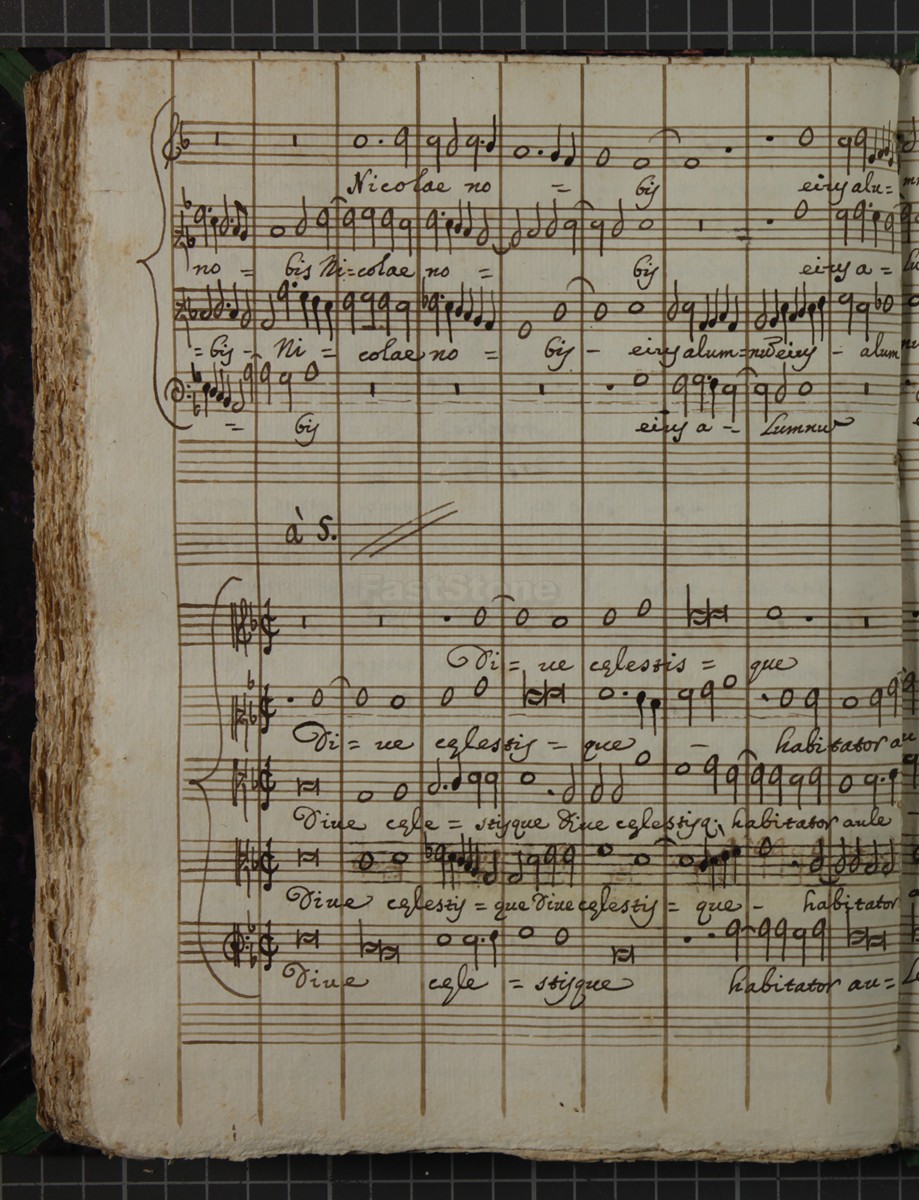 Nicolae no = bis eius alu=
no = bis Ni=colae no = bis eius a =
= bis - Ni = colae no = bis - eius alum= eius - alum
= bis eius a - lumnus
à 5.
FastStone
Diue cęlestis = que
Di= ue cęlestis = que - habitator au
Diue cęle = stisque Diue cęlestisq; habitator aule
Diue cęlestis = que Diue cęlestis = que - habitator
Diue cęle = stisque habitator au=